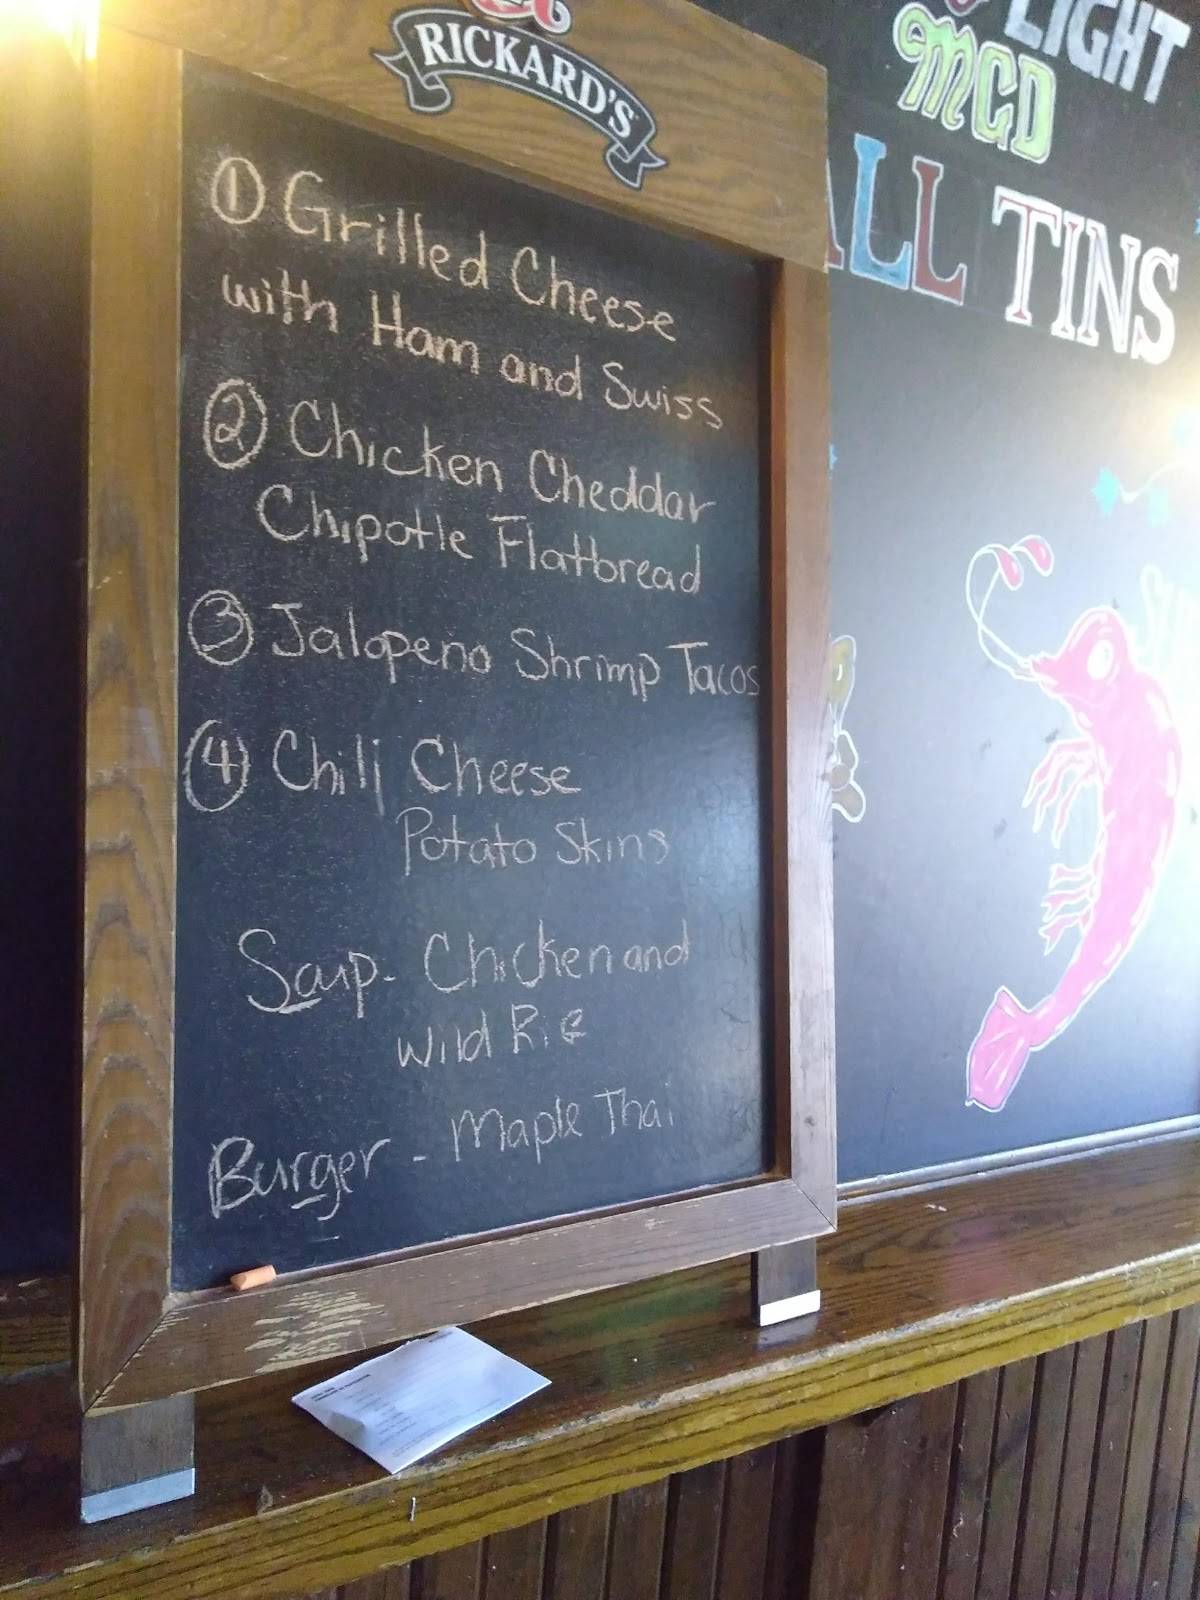 RICKARD'S
① Grilled Cheese
with Ham and Swiss
② Chicken Cheddar
Chipotle Flatbread
③ Jalopeno Shrimp Tacos
④ Chili Cheese
Potato Skins
Soup - Chicken and
Wild Rice
Burger - Maple Thai
LIGHT
MGD
ALL TINS